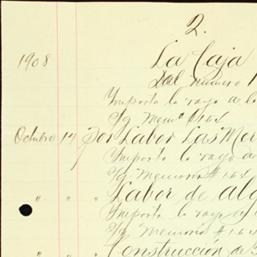 2.
1908 La Caja
Del numero 1
Importe la raya de la
S/g Memo # 162
Octubre 14 Por Labor Las Mor
Importe la raya de
S/g Memoria # 162
" " Labor de alg
Importe la raya
S/g Memoria # 162
" " Construcción de